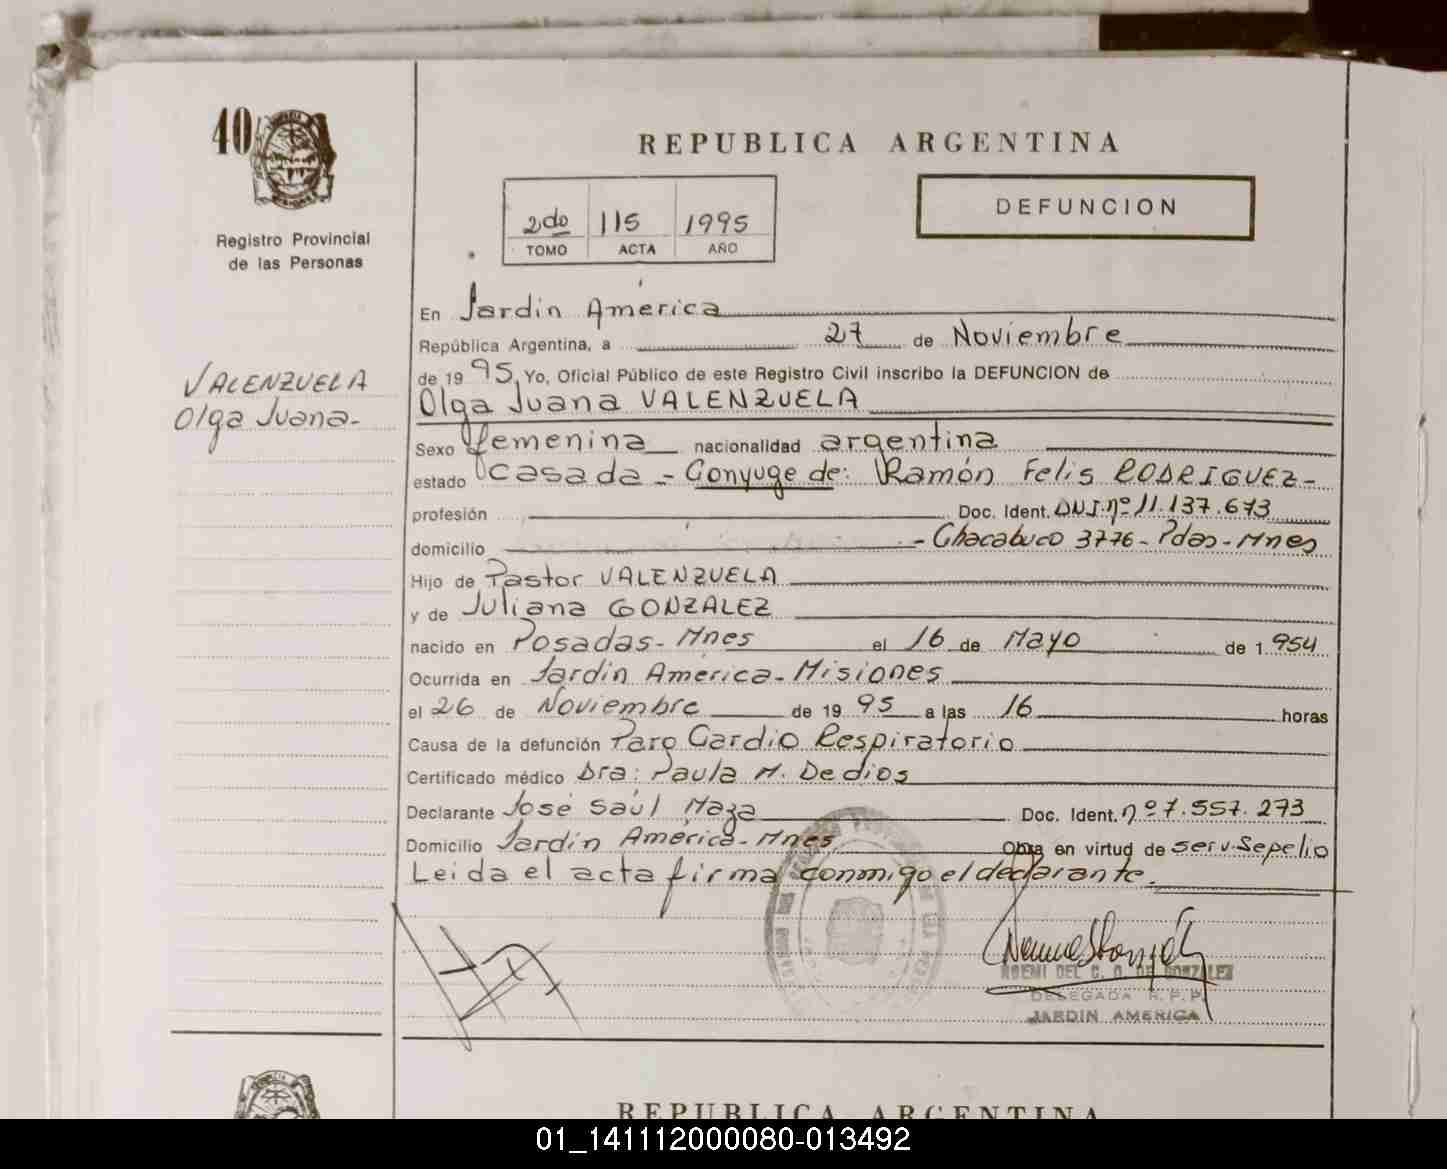 40
Registro Provincial
de las Personas
REPUBLICA ARGENTINA
2do 115 1995
TOMO ACTA AÑO
DEFUNCION
En Jardin América
República Argentina, a 27 de Noviembre
de 1995, Yo, Oficial Público de este Registro Civil inscribo la DEFUNCION de
VALENZUELA
Olga Juana-
Olga Juana VALENZUELA
Sexo femenina nacionalidad argentina
estado casada - Conyuge de: Ramón Felis RODRIGUEZ-
profesión Doc. Ident. DNI.nº 11.137.673
domicilio - Chacabuco 3776 - Pdas - Mnes
Hijo de Pastor VALENZUELA
y de Juliana GONZALEZ
nacido en Posadas- Mnes el 16 de Mayo de 1.954
Ocurrida en Jardin América - Misiones
el 26 de Noviembre de 1995 a las 16 horas
Causa de la defunción Paro Cardio Respiratorio
Certificado médico Dra: Paula M. De dios
Declarante José Saúl Maza Doc. Ident. nº 7.557.273
Domicilio Jardín América - Mnes Obra en virtud de serv. Sepelio
Leida el acta firma conmigo el declarante.
NOEMI DEL C. O. DE GONZALEZ
DELEGADA R. P. P.
JARDIN AMERICA
REPUBLICA ARGENTINA
01_141112000080-013492